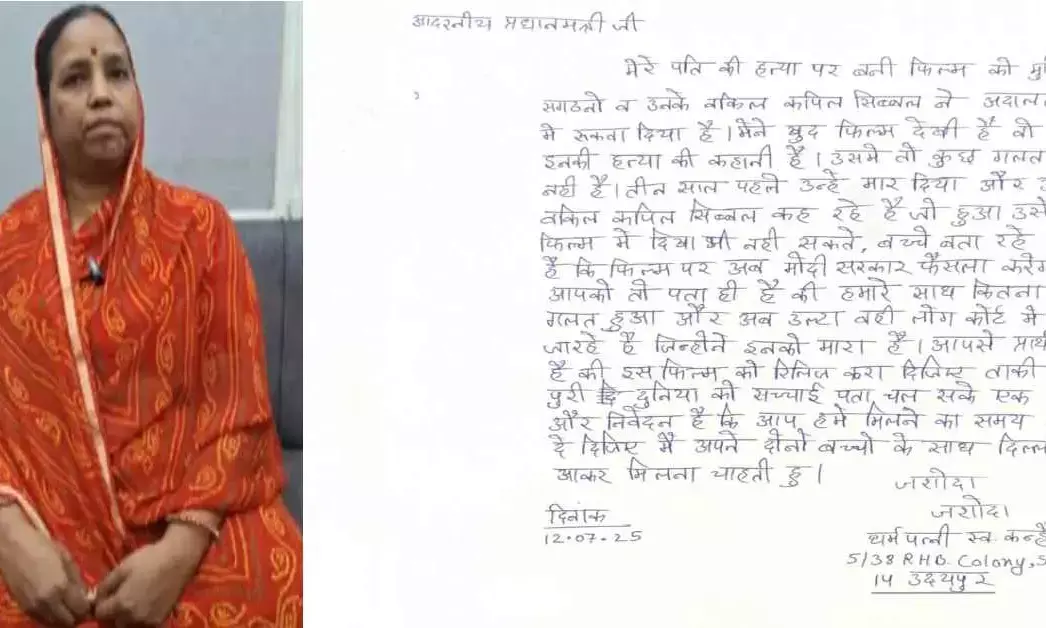 आदरनीय प्रधानमत्री जी
मेरे पति की हत्या पर बनी फिल्म को
सगठनो व उनके वकिल कपिल सिब्बल ने
मे रूकवा दिया है। मेने खुद फिल्म देखी है वो
इनकी हत्या की कहानी है। उसमे तो कुछ गलत
नही है। तीन साल पहले उन्हे मार दिया और
वकिल कपिल सिब्बल कह रहे है जो हुआ उसे
फिल्म मे दिखा भी नही सकते, बच्चे बता रहे
है कि फिल्म पर अब मोदी सरकार फैसला
आपको तो पता ही है की हमारे साथ कितना
गलत हुआ और अब उल्टा वही लोग कोर्ट मे
जारहे है जिन्होने इनको मारा है। आपसे
है की इस फिल्म को रिलिज करा दिजिए ताकी
पुरी दुनिया को सच्चाई पता चल सके एक
और निवेदन है कि आप हमे मिलने का समय
दे दिजिए मै अपने दोनो बच्चो के साथ
आकर मिलना चाहती हु।
जशोदा
जशोदा
दिनांक
12.07.25
धर्म पत्नी स्व.
5/38 RHB. Colony,
14 उदयपुर